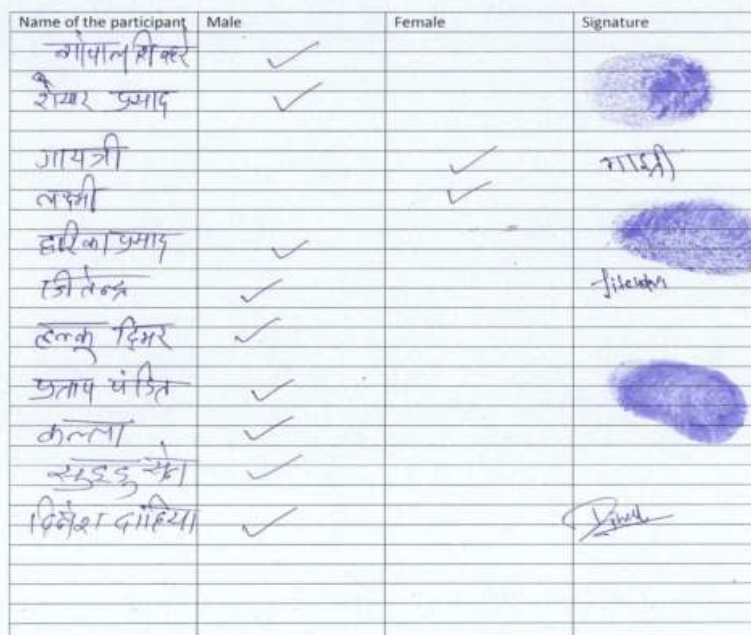 Name of the participant Male Female Signature
गोपाल
प्रसाद
गायत्री गाइत्री
लक्ष्मी
द्वारिका प्रसाद
जीतेन्द्र Jitendra
हल्कू ढिमर
प्रताप पंडित
कल्ला
सेन
दिनेश दाहिया Dinesh